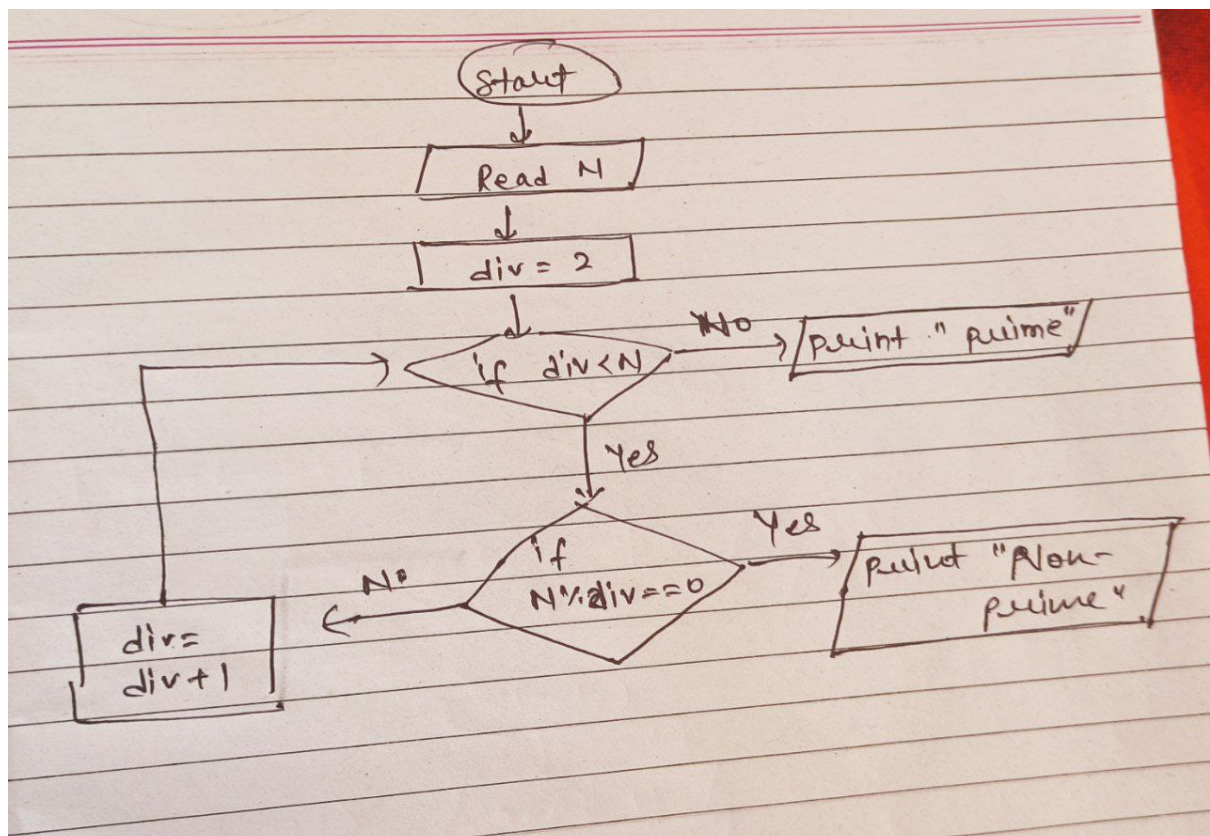 Start
Read N
div = 2
if div < N
No
print "prime"
Yes
if
N % div == 0
Yes
print "Non-
prime"
No
div =
div + 1